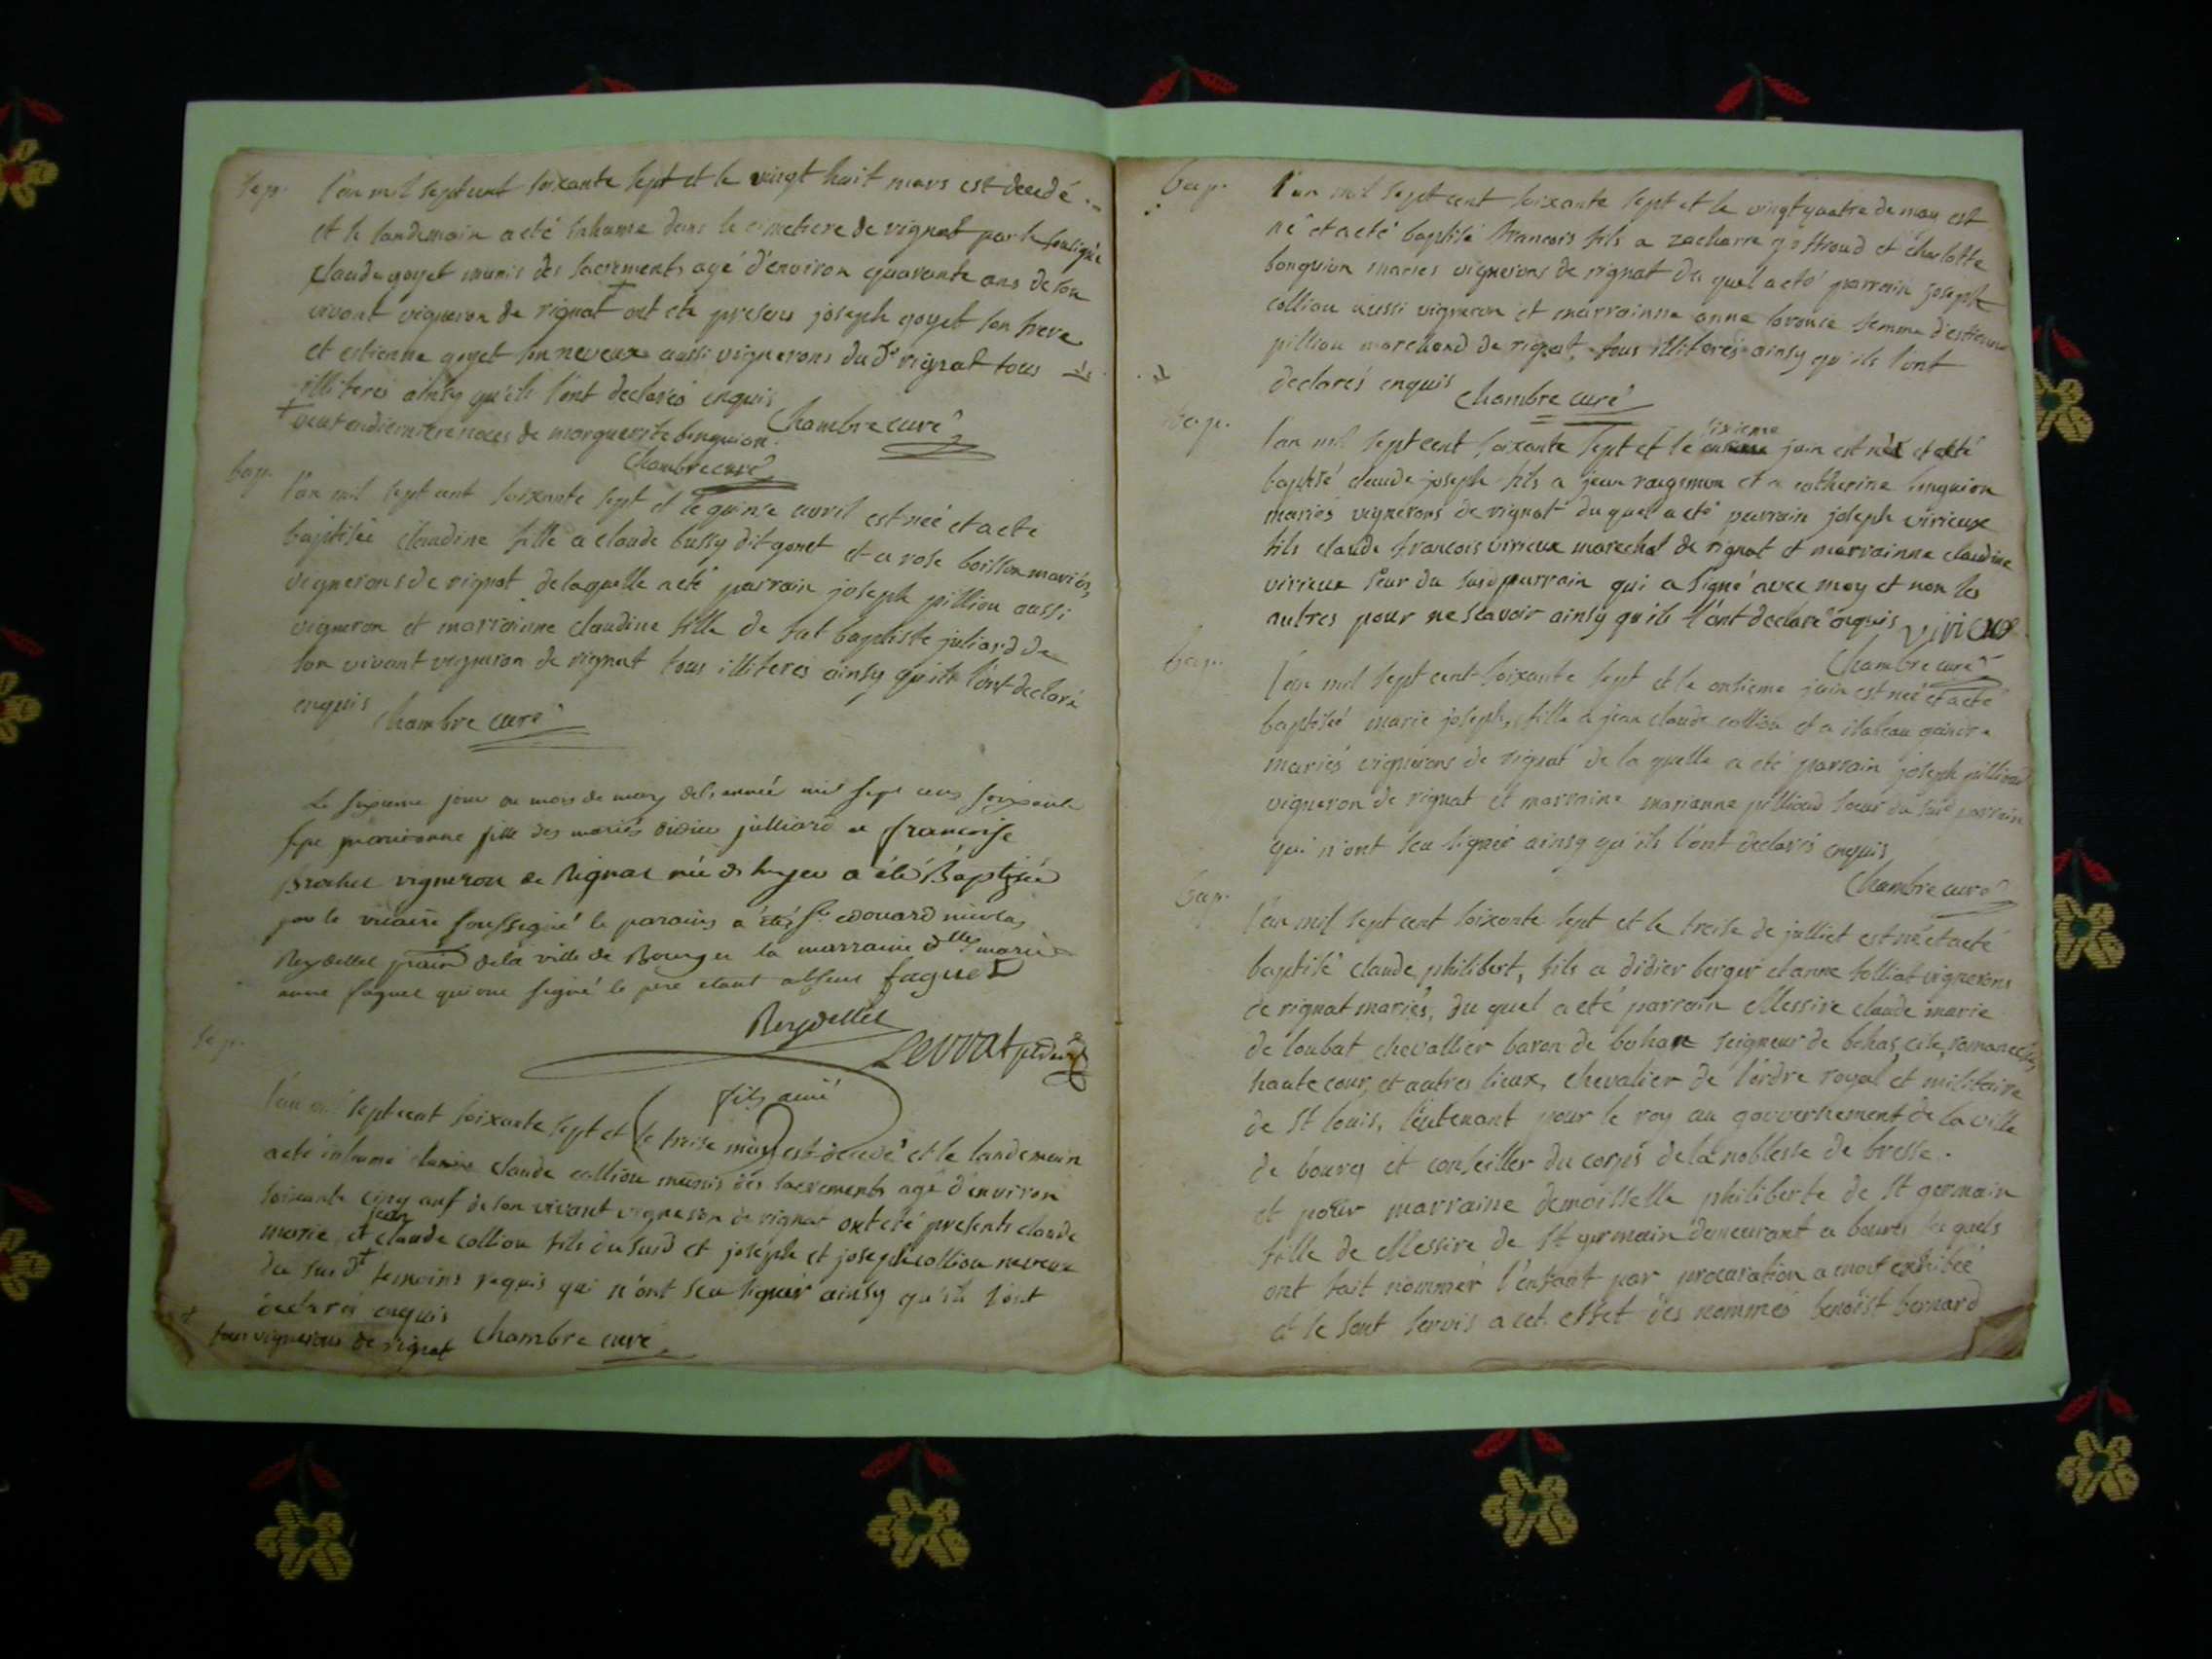 Sep. l'an mil sept cent soixante sept et le vingt huit mars est decedé
et le landemain a eté inhumé dans le cimetiere de rignat par le souligné
claude goyet munis des sacrements agé d'environ quarante ans de son
vivant vigneron de rignat + ont eté presens joseph goyet son frere
et estienne goyet son neveux aussi vignerons du dt rignat tous
illiteres ainsy qu'ils l'ont declarés enquis
Chambre curé
+ veuf en dernieres noces de marguerite bonguion.
Chambre curé
bap. l'an mil sept cent soixante sept et le quinze avril est neé et a eté
baptiseé claudine fille a claude bussy dit gonet et a rose boisson mariés,
vignerons de rignat de laquelle a eté parrain joseph pilliou aussi
vigneron et marrainne claudine fille de fut baptiste juliard de
son vivant vigneron de rignat tous illiteres ainsy qu'ils l'ont declaré
enquis
Chambre curé
Le sixieme jour du mois de may de l'année mil sept cens soixante
sept fille des mariés didier julliard et francoise
Brochet vigneron de Rignat née a été Baptizée
par le vicaire soussigné le parains a été sr edouard nicolas
Reydellet de la ville de Bourg et la marraine dlle marie
anne faguet qui ont signé le pere etant absent faguet
Reydellet
fils ainé
Sep. l'an mil sept cent soixante sept et le treise may est decedé et le landemain
a eté inhumé claude colliou munis des sacrements agé d'environ
soixante cinq ans de son vivant vigneron de rignat ont eté presents claude
marie et jean claude colliou fils du susd et joseph et joseph colliou neveux
du susd + temoins requis qui n'ont sceu signér ainsy qu'ils l'ont
declarés enquis
+ tous vignerons de rignat
Chambre curé
bap. l'an mil sept cent soixante sept et le vingt quatre de may est
né et a eté baptisé francois fils a zacharie et charlotte
bonguion mariés vignerons de rignat du quel a eté parrain joseph
colliou aussi vigneron et marrainne anne femme d'estienne
pilliou marchand de rignat, tous illiterés ainsy qu'ils l'ont
declarés enquis
Chambre curé
bap. l'an mil sept cent soixante sept et le sixieme juin est né et a eté
baptisé claude joseph fils a jean et a catherine bonguion
mariés vignerons de rignat du quel a eté parrain joseph virieux
fils claude francois virieux marechal de rignat et marrainne claudine
virieux seur du susd parrain qui a signé avec moy et non les
autres pour ne scavoir ainsy qu'ils l'ont declaré enquis
virieux
Chambre curé
bap. l'an mil sept cent soixante sept et le onsieme juin est neé et a eté
baptiseé marie joseph, fille a jean claude colliou et a isabeau
mariés vignerons de rignat de la quelle a eté parrain joseph pillioud
vigneron de rignat et marraine marianne pillioud soeur du susd parrain
qui n'ont sceu signér ainsy qu'ils l'ont declarés enquis
Chambre curé
bap. l'an mil sept cent soixante sept et le treise de julliet est né et a eté
baptisé claude philibert, fils a didier berger et anne folliat vignerons
de rignat mariés, du quel a eté parrain Messire claude marie
de loubat chevallier baron de bohan seigneur de bohas,
haute cour, et autres lieux, chevalier de l'ordre royal et militaire
de St louis, lieutenant pour le roy au gouvernement de la ville
de bourg et conseiller du corps de la noblesse de bresse.
et pour marraine demoisselle philiberte de St germain
fille de Messire de St germain demeurant a bourg les quels
ont fait nommér l'enfant par procuration a moy exhibeé
et se sont servis a cet effet des nommés benoist bernard